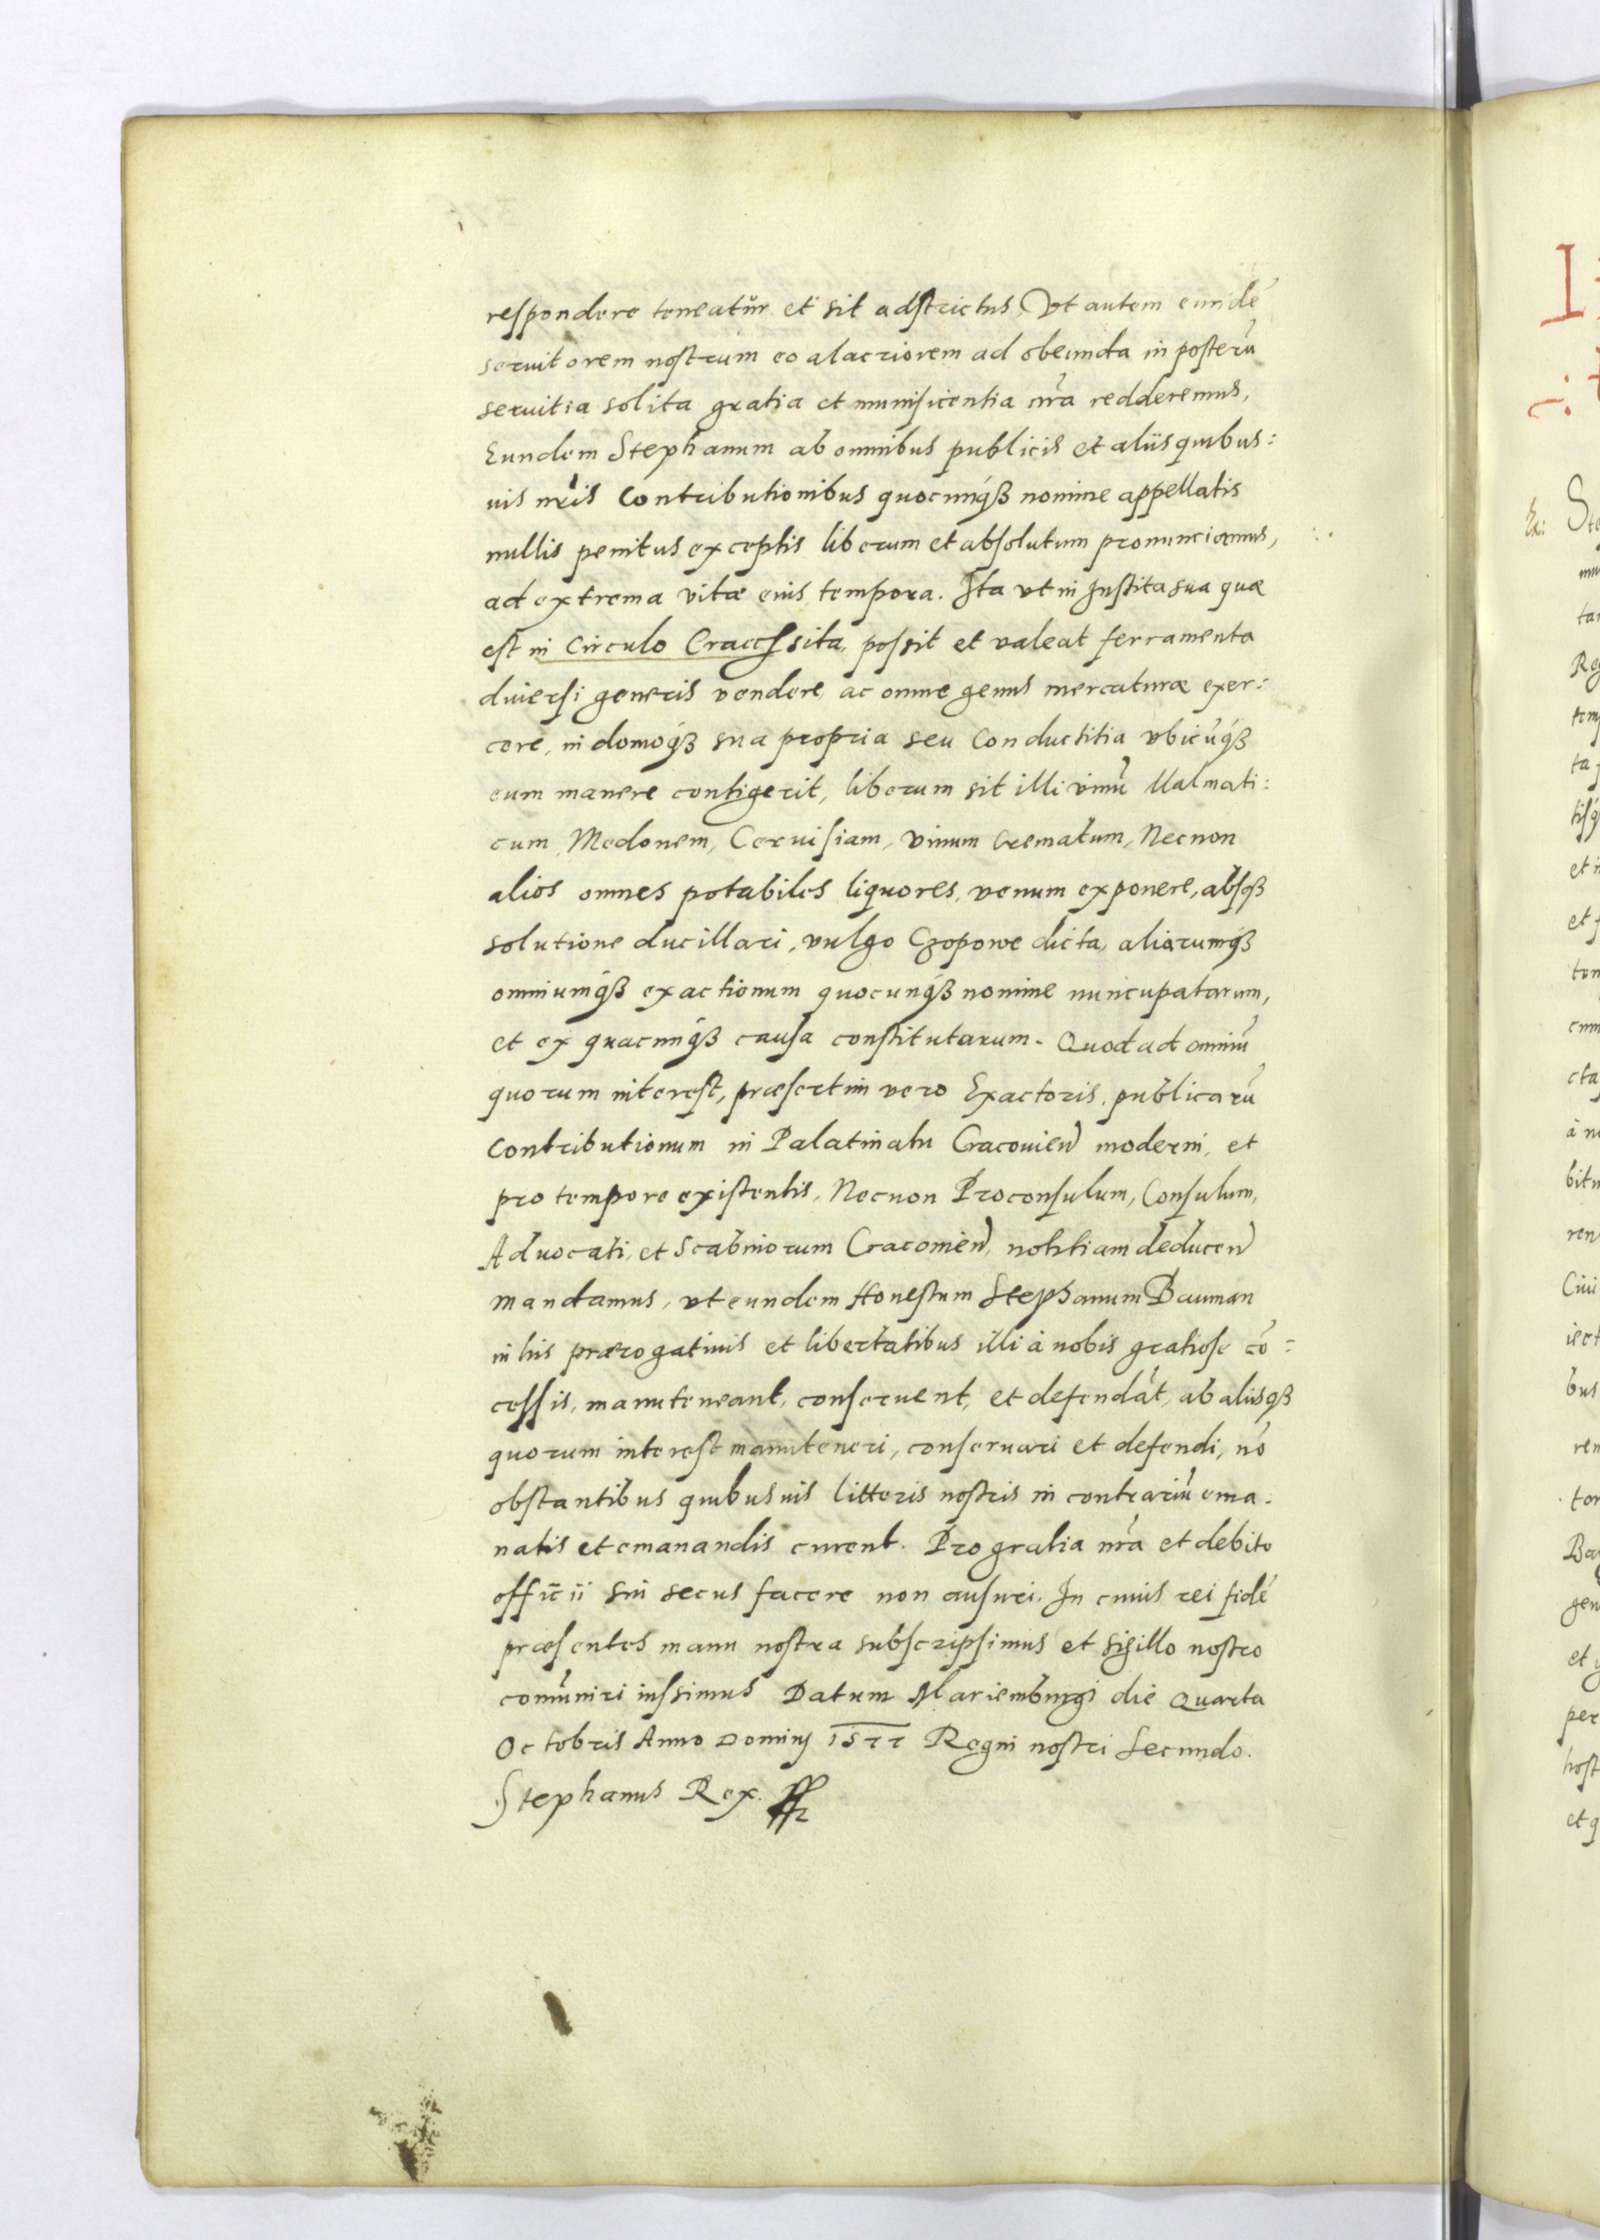 respondere teneatur et sit adstrictus, Vt autem eundē
seruitorem nostrum eo alacriorem ad obeunda in posterū
seruitia solita gratia et munificentia nrā redderemus,
Eundem Stephanum ab omnibus publicis et aliis quibus:
uis nrīs Contributionibus quocunqꝫ nomine appellatis
nullis penitus exceptis liberum et absolutum pronunciamus,
ad extrema vitæ eius tempora. Ita vt in Instita sua quæ
est in Circulo Cracc̄ sita, possit et valeat ferramenta
diuersi generis vendere, ac omne genus mercaturæ exer:
cere, in domoqꝫ sua propria seu Conductitia vbicūqꝫ
eum manere contigerit, liberum sit illi vinū Malmati:
cum, Medonem, Ceruisiam, Vinum Crematum, Necnon
alios omnes potabiles liquores, venum exponere, absqꝫ
solutione ducillari, vulgo Czopowe dicta, aliarumqꝫ
omniumqꝫ exactionum quocunqꝫ nomine nuncupatarum,
et ex quacunqꝫ causa constitutarum. Quod ad omniū
quorum interest, præsertim vero Exactoris, publicarū
Contributionum in Palatinatu Cracouien̄ moderni, et
pro tempore existentis, Necnon Proconsulum, Consulum,
Aduocati, et Scabinorum Cracouien̄, notitiam deducen̄
mandamus, vt eundem Honestum Stephanum Bauman
in his prærogatiuis et libertatibus illi à nobis gratiose cō:
cessis, manuteneant, conseruent, et defendāt, ab aliisqꝫ
quorum interest manuteneri, conseruari et defendi, nō
obstantibus quibusuis litteris nostris in contrariū ema:
natis et emanandis curent. Pro gratia nrā et debito
officii sui secus facere non ausuri. In cuius rei fidē
præsentes manu nostra subscripsimus et sigillo nostro
com̄uniri iussimus Datum Mariemburgi die Quarta
Octobris Anno Dominj 1577 Regni nostri Secundo.
Stephanus Rex.